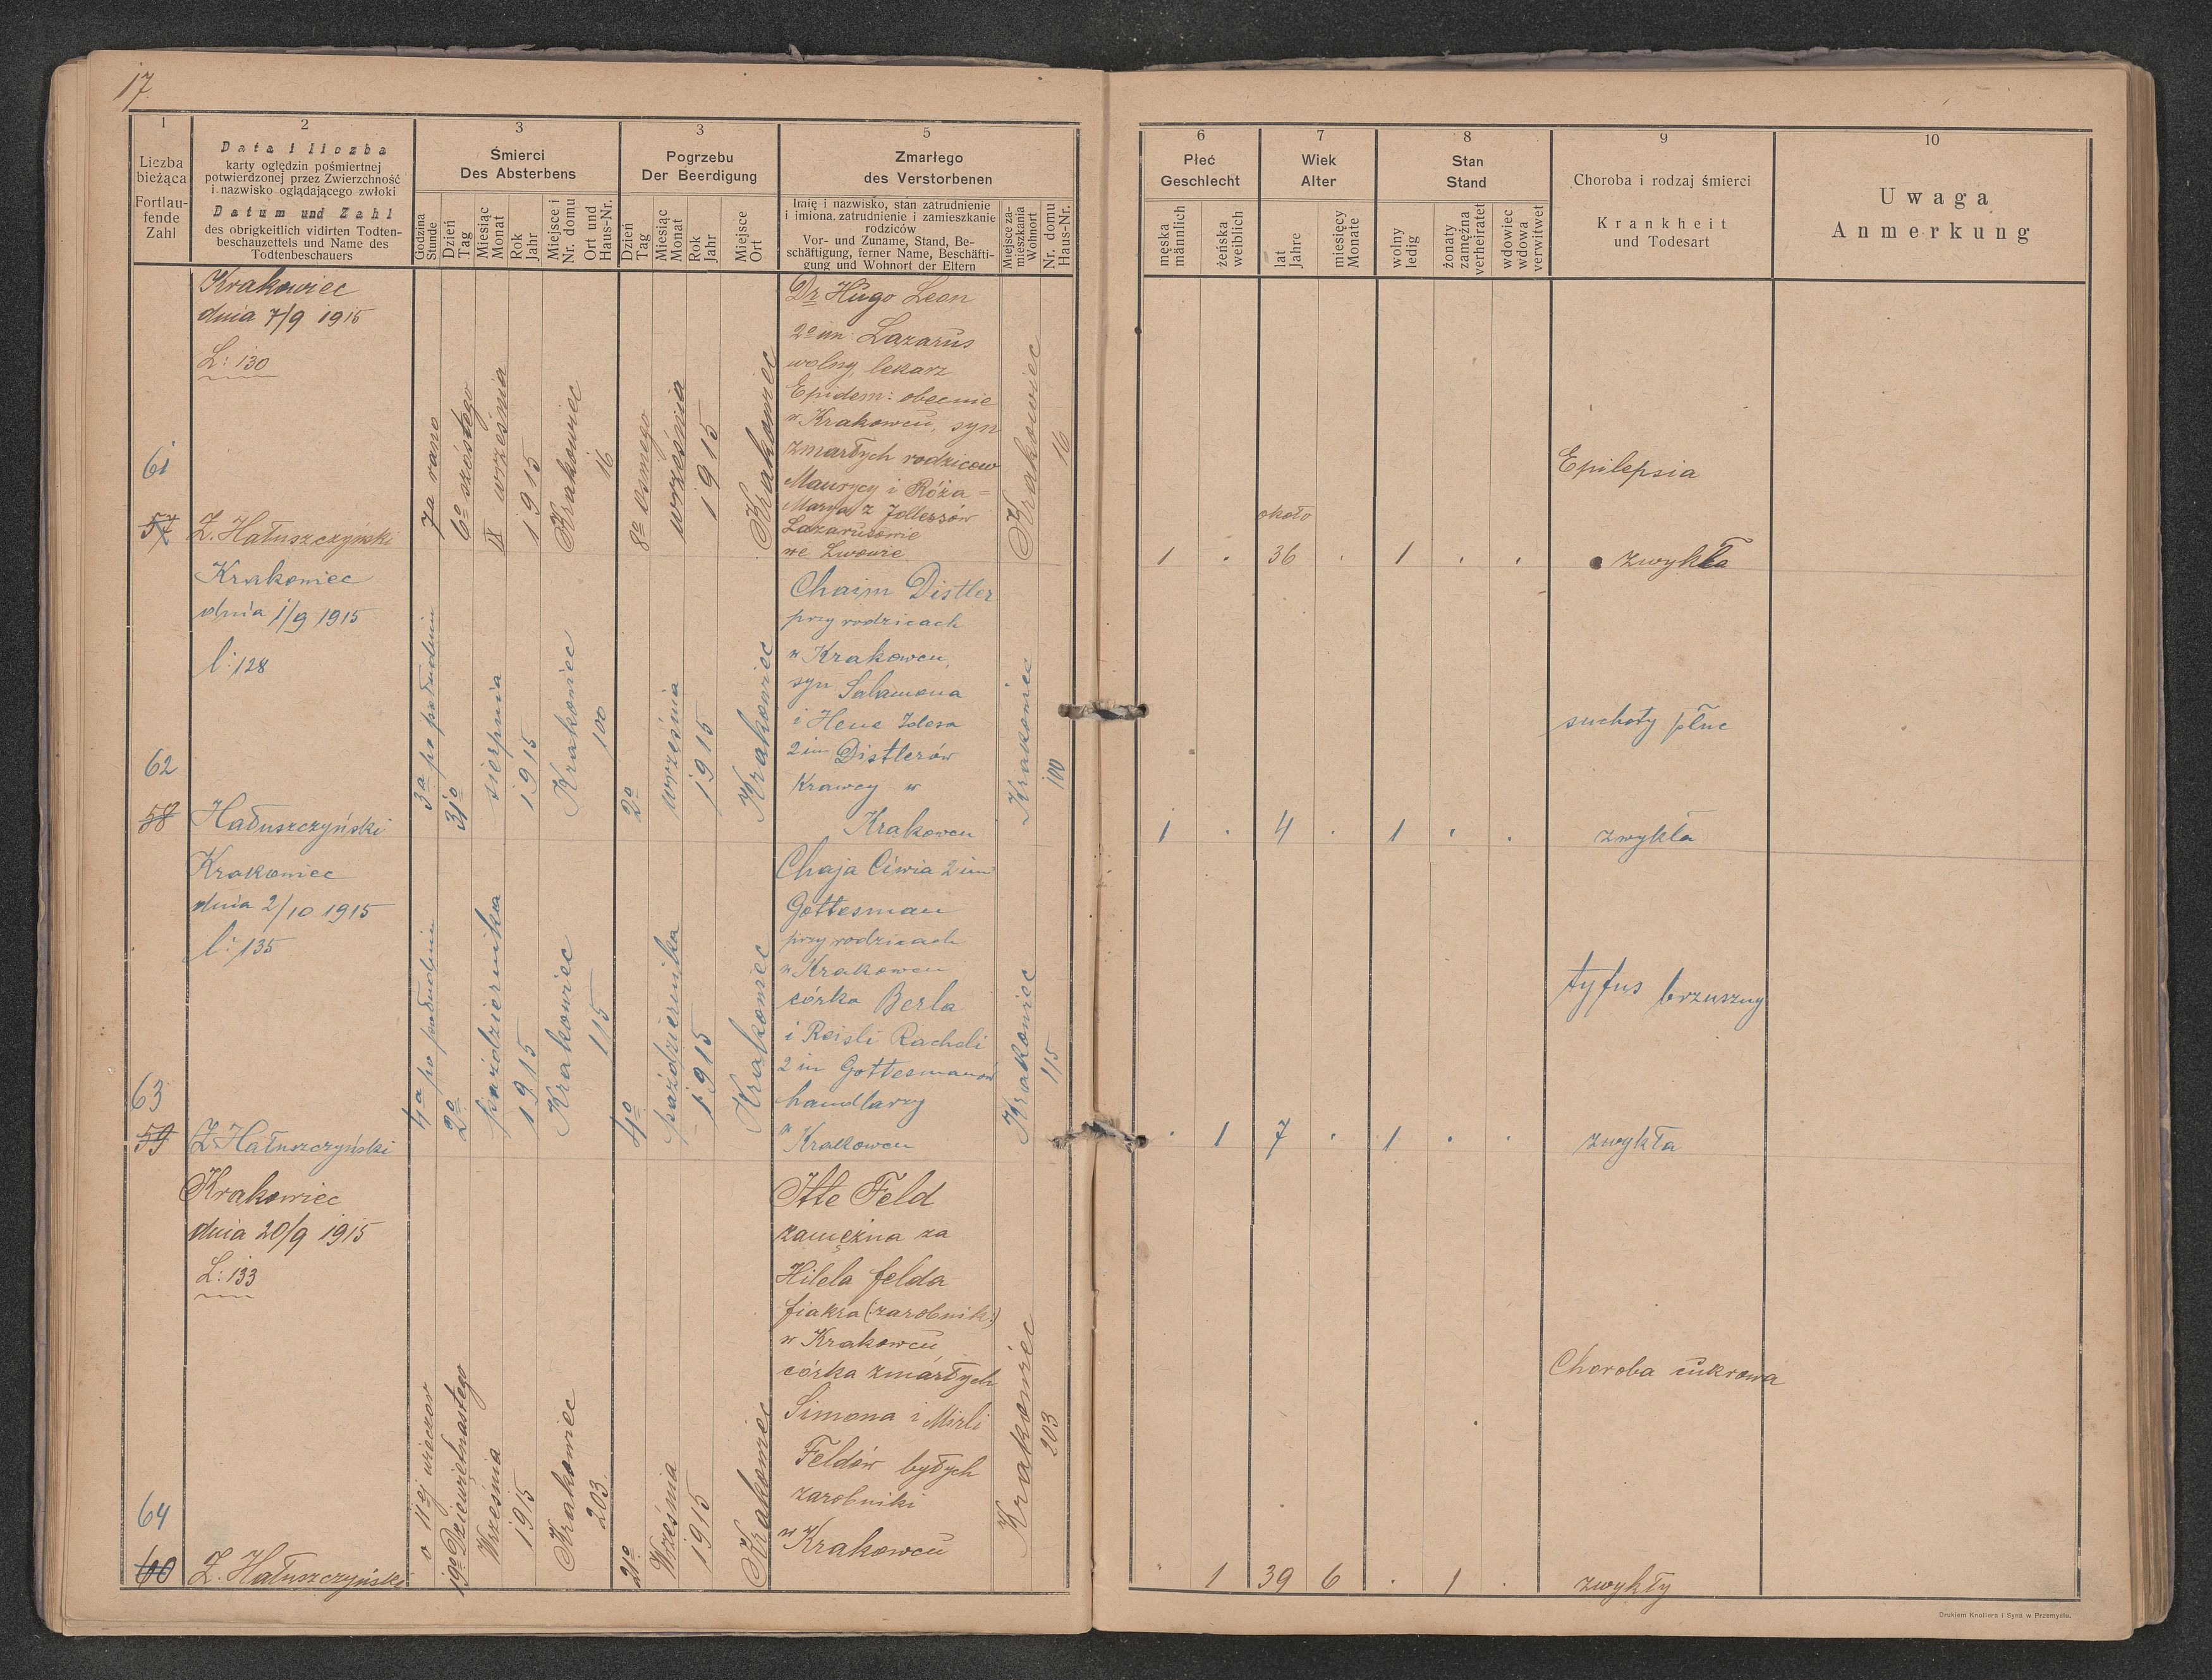 17.
1
2
3
3
5
6
7
8
9
10
Liczba
bieżąca
Fortlau-
fende
Zahl
Data i liczba
karty oględzin pośmiertnej
potwierdzonej przez Zwierzchność
i nazwisko oglądającego zwłoki
Datum und Zahl
des obrigkeitlich vidirten Todten-
beschauzettels und Name des
Todtenbeschauers
Śmierci
Des Absterbens
Godzina
Stunde
Dzień
Tag
Miesiąc
Monat
Rok
Jahr
Miejsce i
Nr. domu
Ort und
Haus-Nr.
Pogrzebu
Der Beerdigung
Dzień
Tag
Miesiąc
Monat
Rok
Jahr
Miejsce
Ort
Zmarłego
des Verstorbenen
Imię i nazwisko, stan zatrudnienie
i imiona, zatrudnienie i zamieszkanie
rodziców
Vor- und Zuname, Stand, Be-
schäftigung, ferner Name, Beschäfti-
gung und Wohnort der Eltern
Miejsce za-
mieszkania
Wohnort
Nr. domu
Haus-Nr.
Płeć
Geschlecht
męska
männlich
żeńska
weiblich
Wiek
Alter
lat
Jahre
miesięcy
Monate
Stan
Stand
wolny
ledig
żonaty
zamężna
verheiratet
wdowiec
wdowa
verwitwet
Choroba i rodzaj śmierci
Krankheit
und Todesart
Uwaga
Anmerkung
61
57
Krakowiec
dnia 7/9 1915
L: 130
Z. Hałuszczyński
7a rano
6o szóstego
IX września
1915
Krakowiec
16
8o ósmego
września
1915
Krakowiec
Dr Hugo Leon
2o im: Lazarus
wolny, lekarz
Epidem: obecnie
w Krakowcu, syn
zmarłych rodziców
Maurycy i Róża=
Marya z Jollesów
Lazarusowie
we Lwowie
Krakowiec
16
1 . około 36 . 1 . .
Epilepsia
zwykła
62
58
Krakowiec
dnia 1/9 1915
l: 128
Hałuszczyński
3a po południu
31o
sierpnia
1915
Krakowiec
100
2o
września
1915
Krakowiec
Chaim Distler
przy rodzicach
w Krakowcu,
syn Salamona
i Hene Idesa
2 im Distlerów
Krawcy w
Krakowcu
Krakowiec
100
1 . 4 . 1 . .
suchoty płuc
zwykła
63
59
Krakowiec
dnia 2/10 1915
l: 135
Z Hałuszczyński
4a po południu
2o
października
1915
Krakowiec
115
4o
października
1915
Krakowiec
Chaja Ciwia 2 im
Gottesman
przy rodzicach
w Krakowcu
córka Berla
i Reisli Racheli
2 im Gottesmanów
handlarzy
w Krakowcu
Krakowiec
115
. 1 7 . 1 . .
tyfus brzuszny
zwykła
64
60
Krakowiec
dnia 20/9 1915
L: 133
Z. Hałuszczyński
o 11ej wieczór
19o Dziewiętnastego
Września
1915
Krakowiec
203.
21o
Września
1915
Krakowiec
Itte Feld
zamężna za
Hilela Felda
fiakra (:zarobnik:)
w Krakowcu,
córka zmarłych
Simona i Mirli
Feldów byłych
zarobniki
w Krakowcu
Krakowiec
203
. 1 39 6 . 1 .
Choroba cukrowa
zwykły
Drukiem Knollera i Syna w Przemyślu.